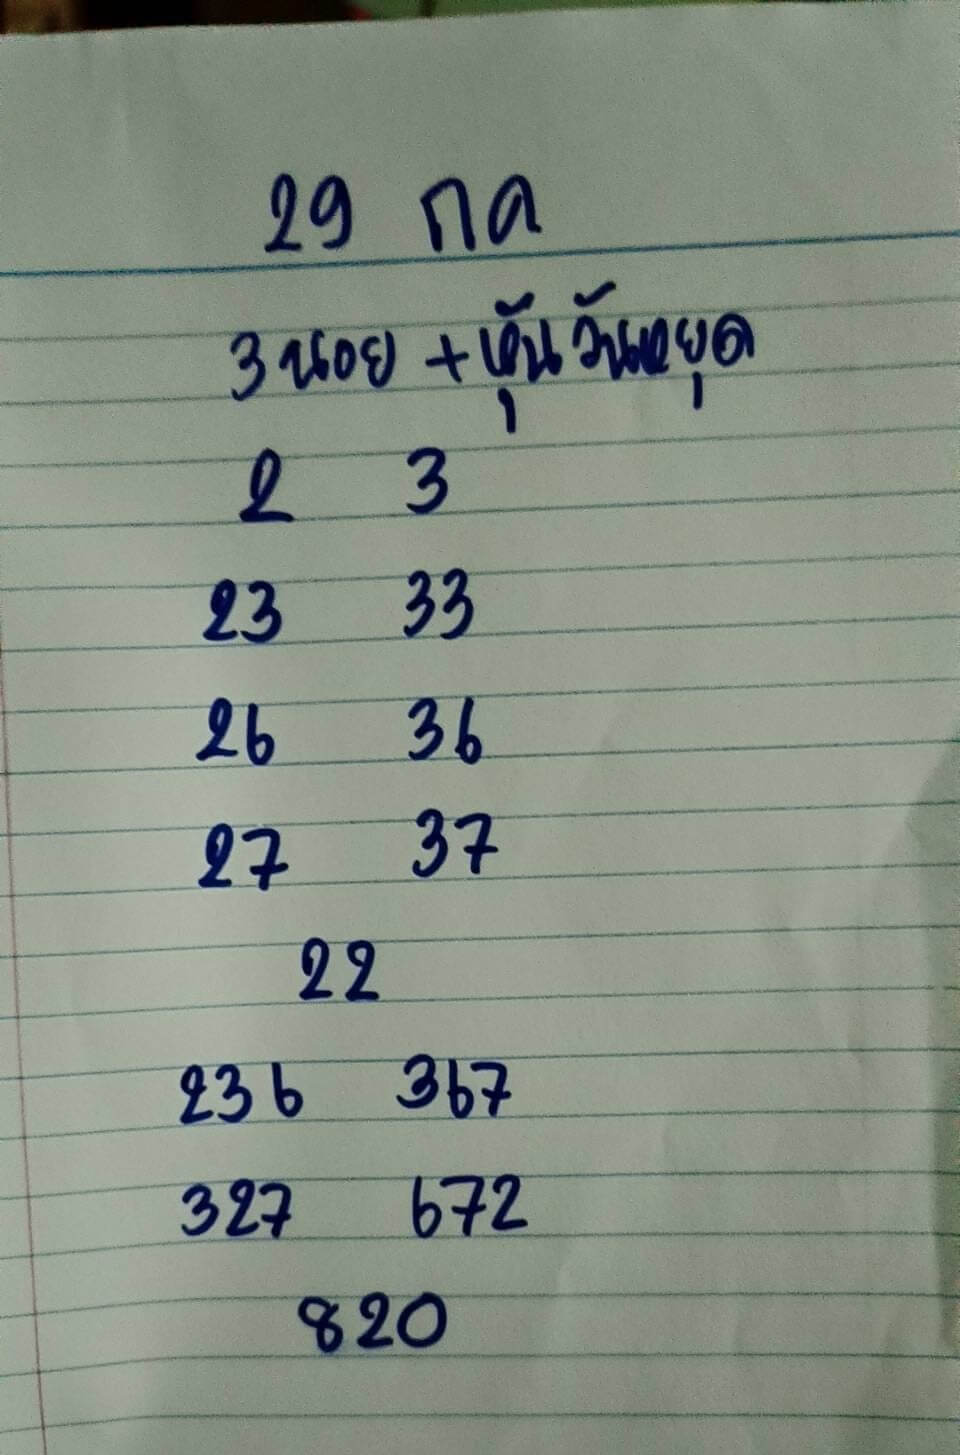 29 กค
3นอย + หุ้นวันหยุด
2 3
23 33
26 36
27 37
22
236 367
327 672
820